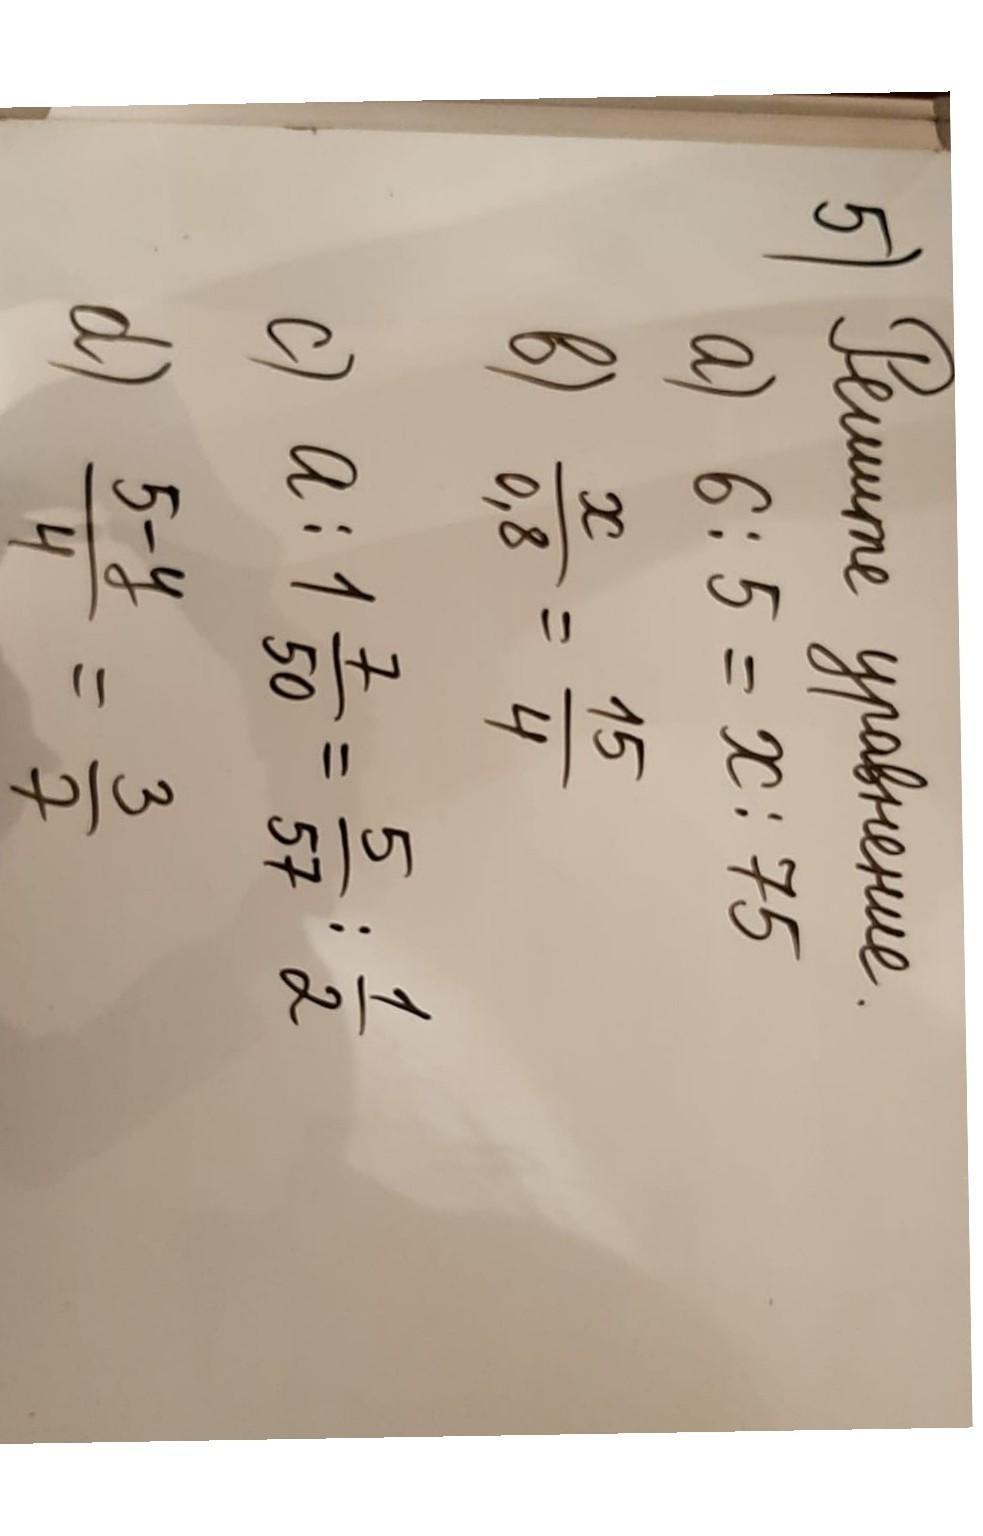 5) Решите уравнение.
a) 6 : 5 = x : 75
b) x/0,8 = 15/4
c) a : 1 7/50 = 5/57 : 1/2
d) (5-y)/4 = 3/7